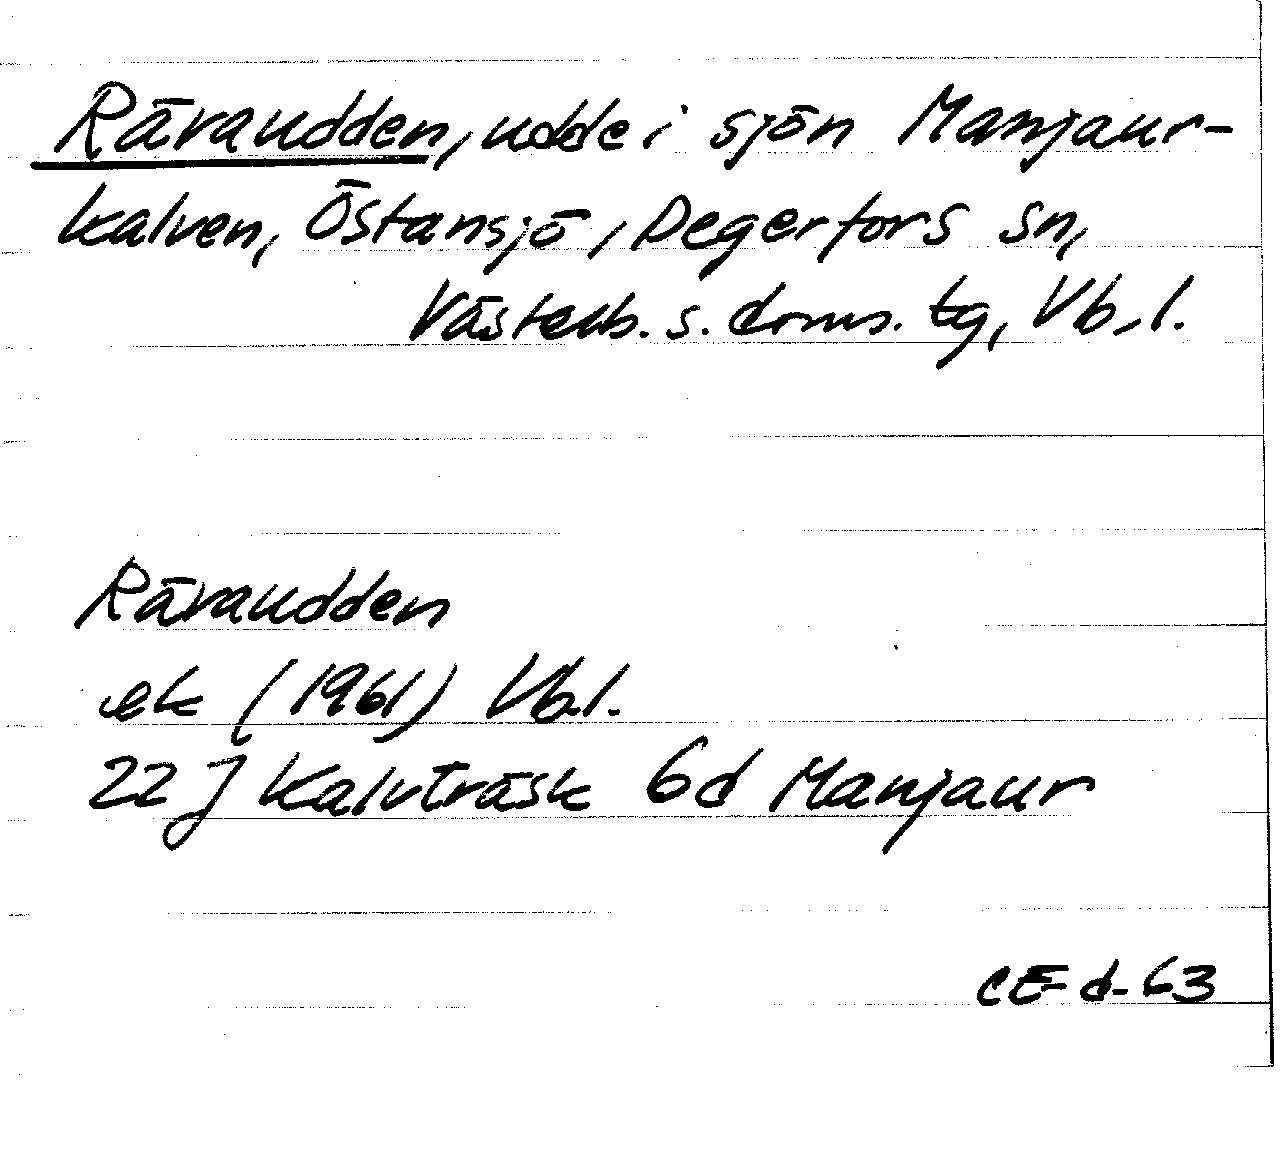 Rävaudden, udde i sjön Manjaur-
kalven, Östansjö, Degerfors sn,
Västerb. s. doms. tg, Vb. l.
Rävaudden
ek (1961) Vb.l.
22 J Kalvträsk 6d Manjaur
CE d-63